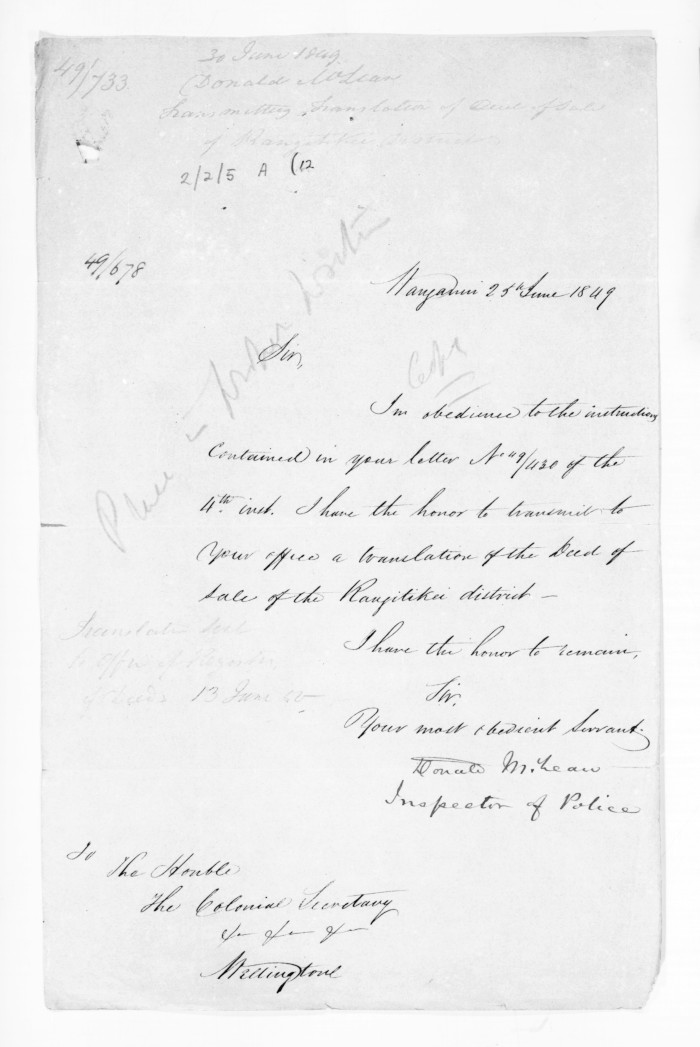 49/733
30 June 1849
Donald McLean
Transmitting Translation of Deed of Sale
of Rangitikei
2/2/5 A (12
49/678
Wanganui 25th June 1849
Sir,
Copy
In obedience to the instructions
contained in your letter No 49/430 of the
4th inst. I have the honor to transmit to
your office a translation of the Deed of
Sale of the Rangitikei district —
I have the honor to remain,
Sir,
Your most obedient Servant
Donald McLean
Inspector of Police
Translation sent
to Office of
of Deeds 13 June
To
The Honble
The Colonial Secretary
&c &c &c
Wellington